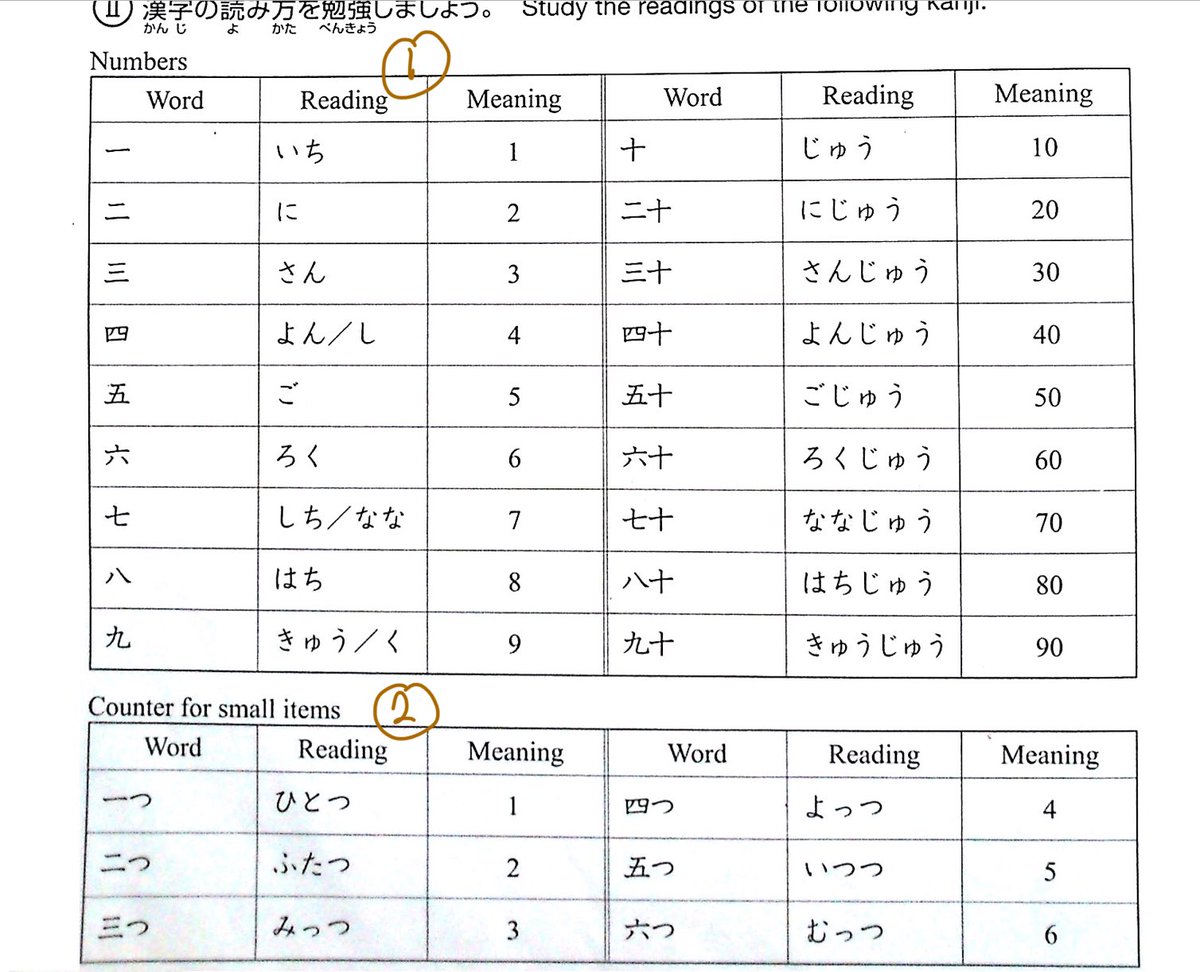 Ⅱ 漢字の読み方を勉強しましょう。 Study the readings of the following kanji.
かんじ よ かた べんきょう
Numbers ①
Word Reading Meaning Word Reading Meaning
一 いち 1 十 じゅう 10
二 に 2 二十 にじゅう 20
三 さん 3 三十 さんじゅう 30
四 よん/し 4 四十 よんじゅう 40
五 ご 5 五十 ごじゅう 50
六 ろく 6 六十 ろくじゅう 60
七 しち/なな 7 七十 ななじゅう 70
八 はち 8 八十 はちじゅう 80
九 きゅう/く 9 九十 きゅうじゅう 90
Counter for small items ②
Word Reading Meaning Word Reading Meaning
一つ ひとつ 1 四つ よっつ 4
二つ ふたつ 2 五つ いつつ 5
三つ みっつ 3 六つ むっつ 6